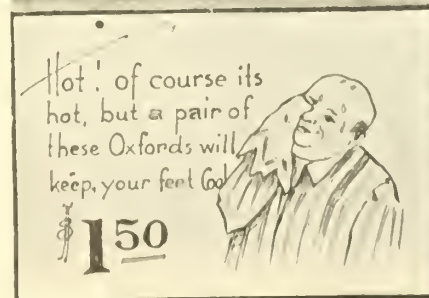 Hot! of course its
hot, but a pair of
these Oxfords will
keep, your feet Cool
$1.50